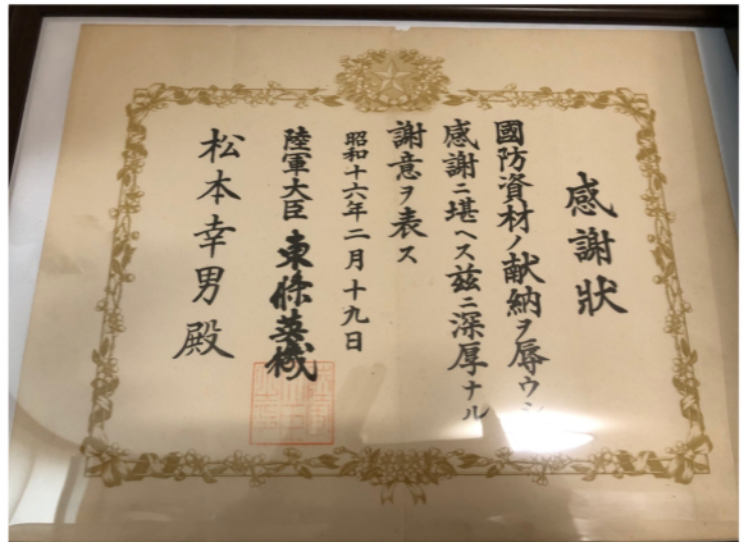 感謝狀
國防資材ノ献納ヲ辱ウシ
感謝ニ堪ヘス茲ニ深厚ナル
謝意ヲ表ス
昭和十六年二月十九日
陸軍大臣 東條英機
松本幸男殿